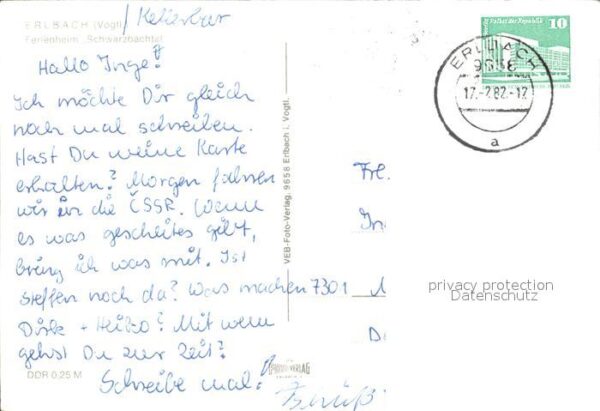 ERLBACH (Vogtl.)
Ferienheim "Schwarzbachtal"
Hallo Inge!
Ich möchte Dir gleich
noch mal schreiben.
Hast Du meine Karte
erhalten? Morgen fahren
wir in die ČSSR. Wenn
es was gescheites gibt,
bring ich was mit. Ist
Steffen noch da? Was machen
Dirk + Heiko? Mit wem
gehst Du zur Zeit?
Schreibe mal.
DDR 0,25 M
VEB-Foto-Verlag, 9658 Erlbach i. Vogtl.
Palast der Republik
10
ERLBACH
9658
17.-2.82-12
a
Frl.
In
7301
privacy protection
Datenschutz